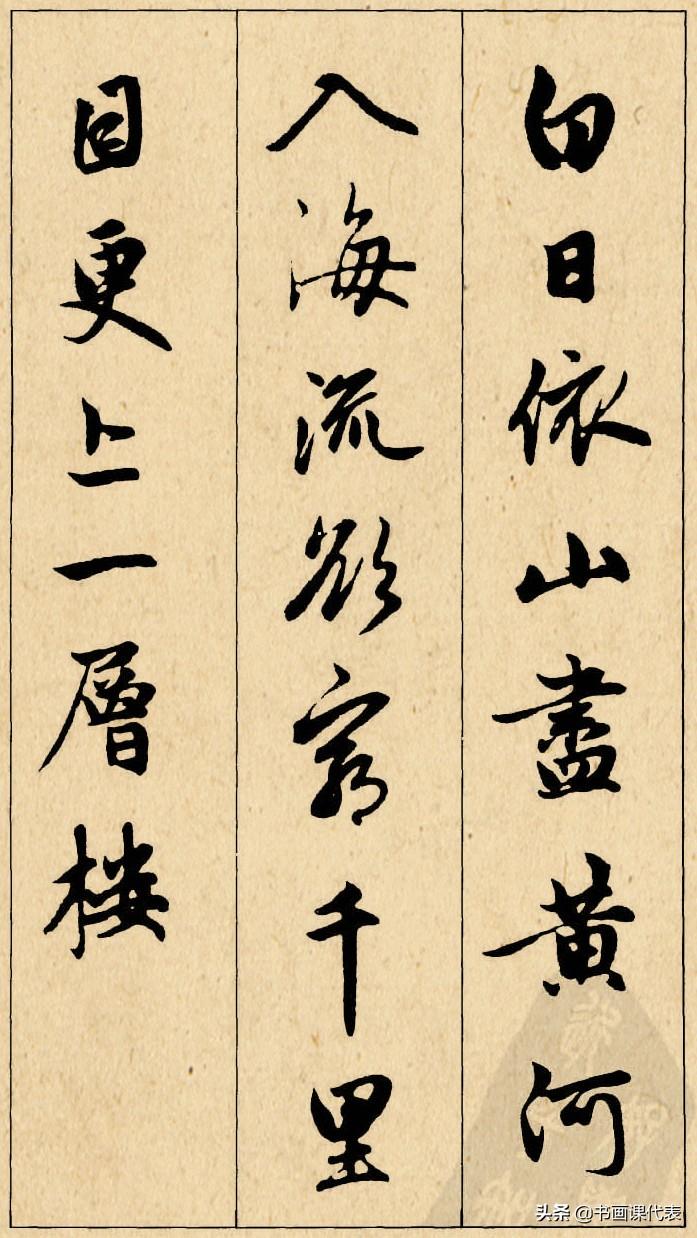 白日依山盡黄河
入海流欲窮千里
目更上一層楼
头条 @书画课代表